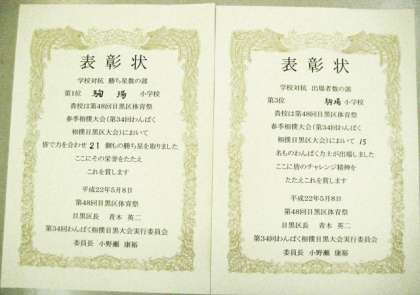 表彰状
学校対抗 勝ち星数の部
第1位 駒場 小学校
貴校は第48回目黒区体育祭
春季相撲大会(第34回わんぱく
相撲目黒区大会)において
皆で力を合わせ 21 個もの勝ち星を取りました
ここにその栄誉をたたえ
これを賞します
平成22年5月8日
第48回目黒区体育祭
目黒区長 青木 英二
第34回わんぱく相撲目黒大会実行委員会
委員長 小野瀬 康裕
表彰状
学校対抗 出場者数の部
第3位 駒場 小学校
貴校は第48回目黒区体育祭
春季相撲大会(第34回わんぱく
相撲目黒区大会)において 15
名ものわんぱく力士が出場しました
ここに皆のチャレンジ精神を
たたえこれを賞します
平成22年5月8日
第48回目黒区体育祭
目黒区長 青木 英二
第34回わんぱく相撲目黒大会実行委員会
委員長 小野瀬 康裕